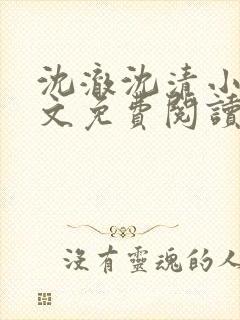 沈澈沈清小
文免費閱讀
沒有靈魂的人